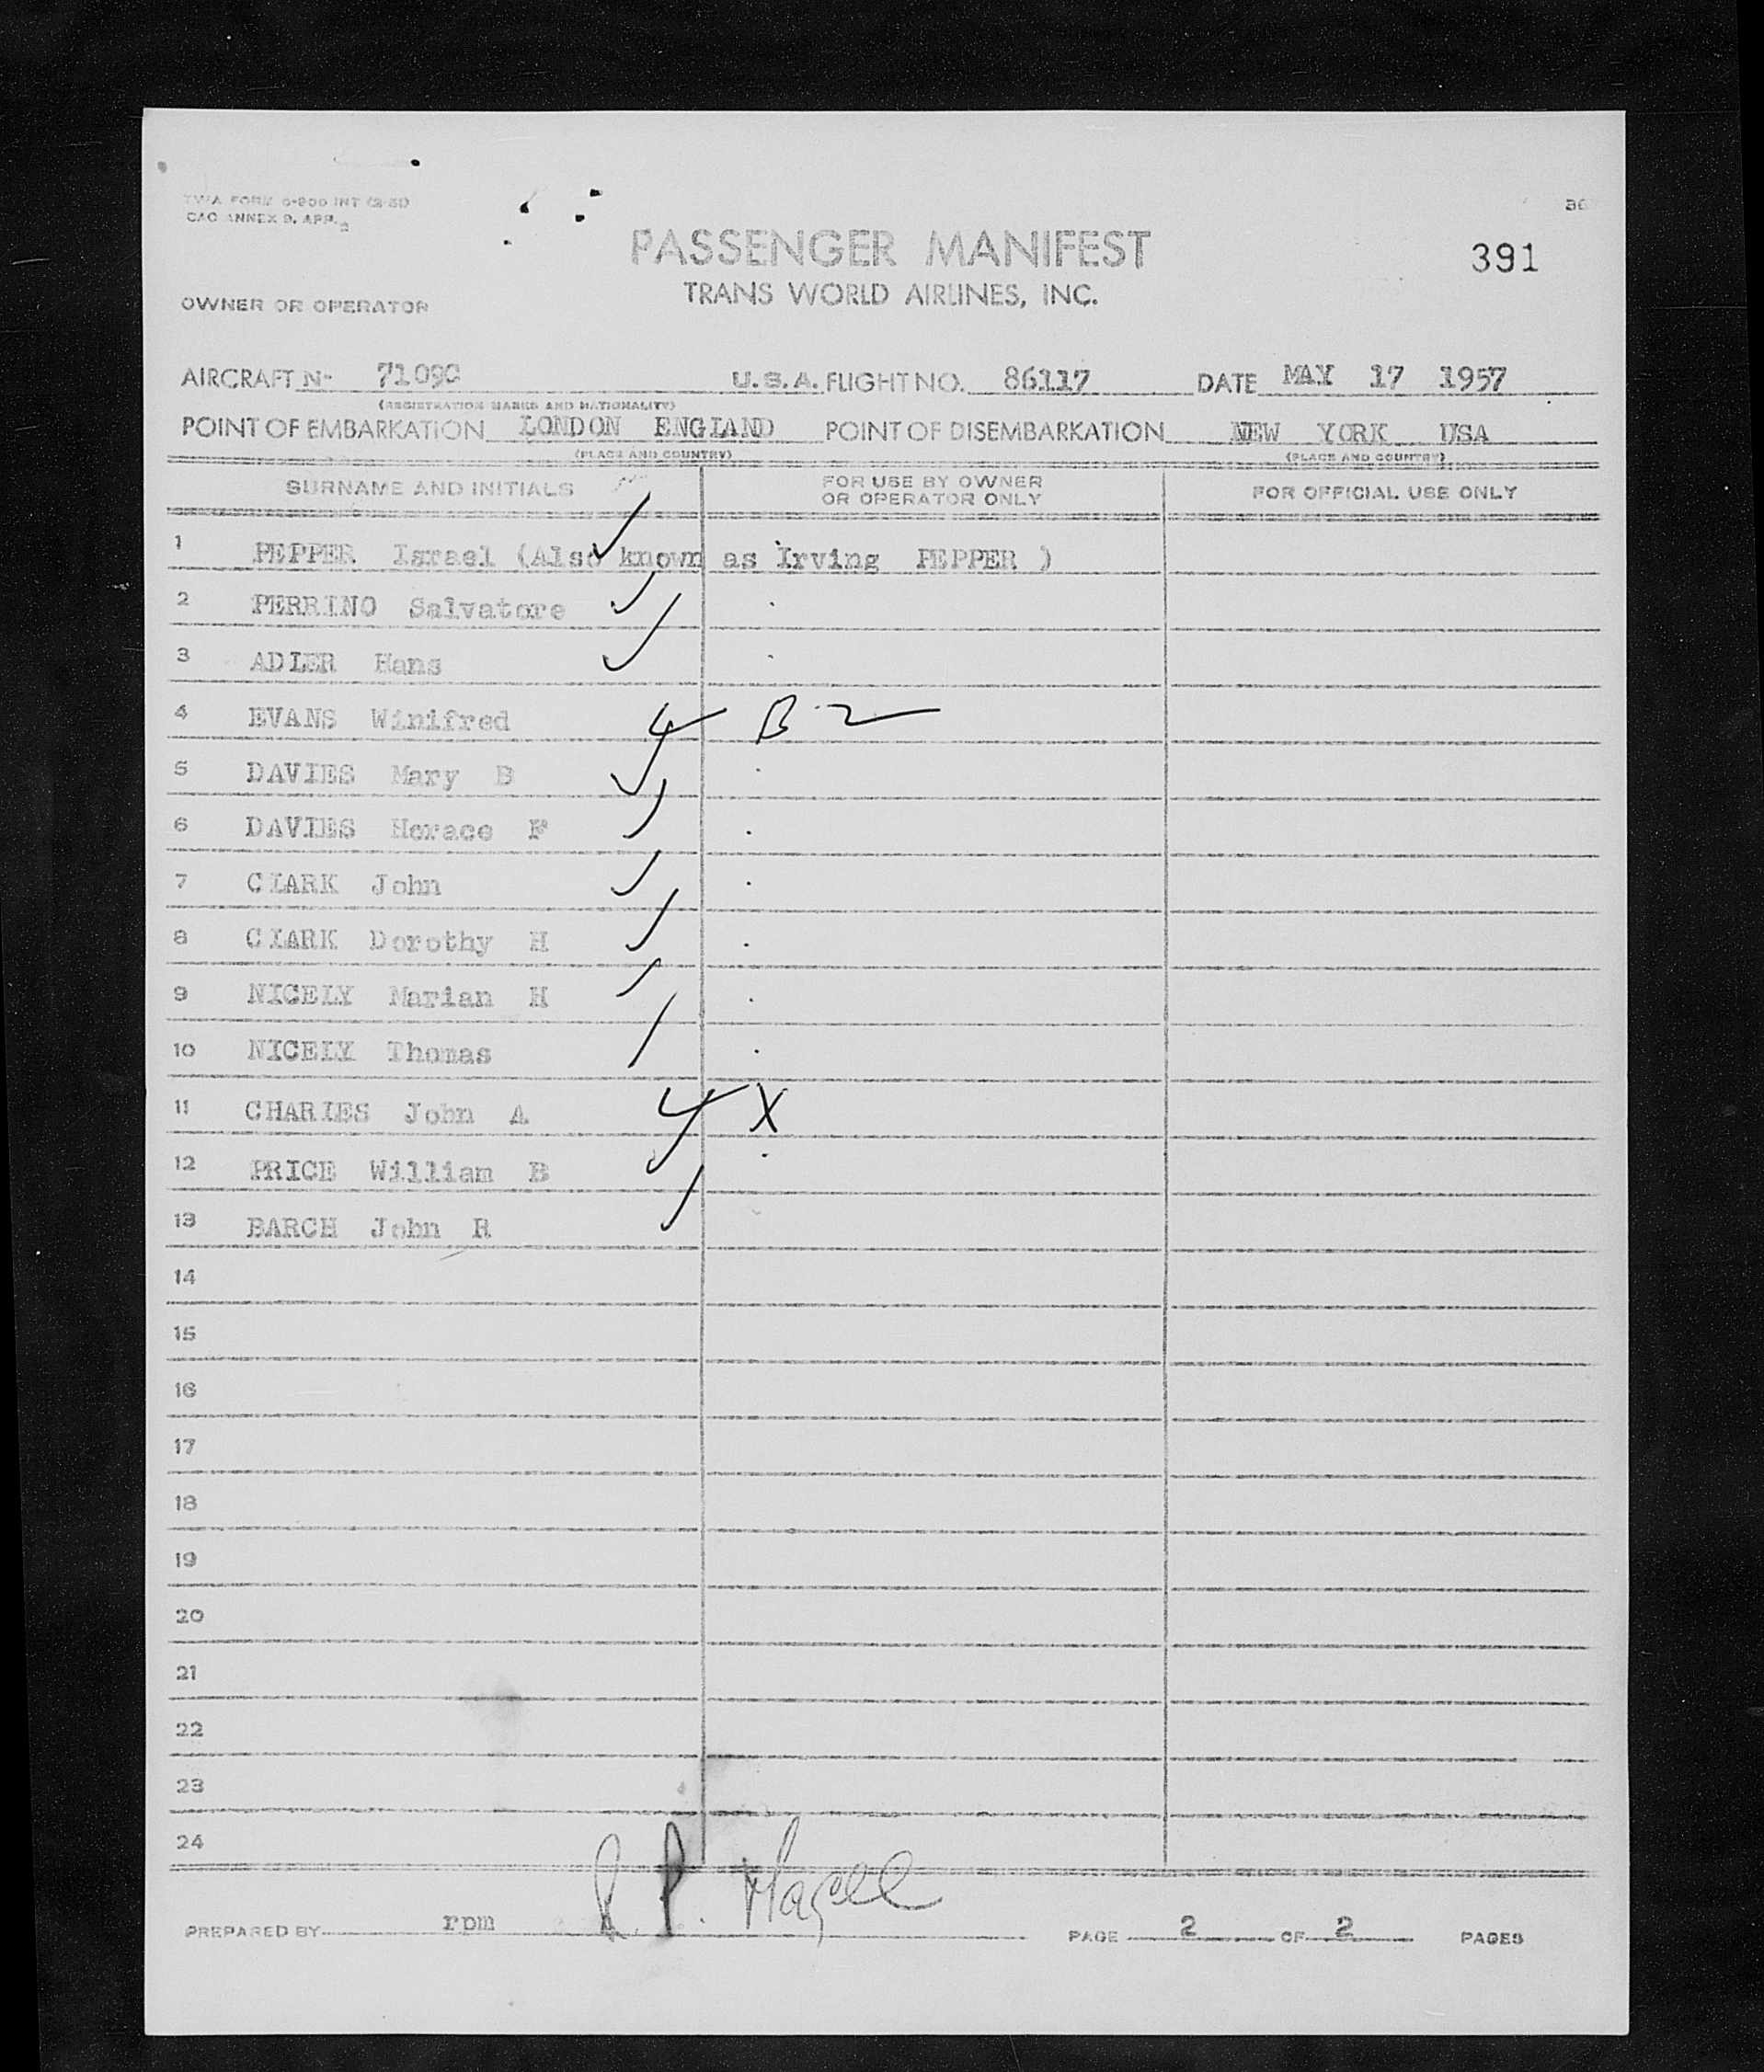 TWA FORM 0-200 INT (2-51)
CAO ANNEX 9, APP. 2
PASSENGER MANIFEST
391
TRANS WORLD AIRLINES, INC.
OWNER OR OPERATOR
AIRCRAFT N- 7109C U.S.A. FLIGHT NO. 86117 DATE MAY 17 1957
(REGISTRATION MARKS AND NATIONALITY)
POINT OF EMBARKATION LONDON ENGLAND POINT OF DISEMBARKATION NEW YORK USA
(PLACE AND COUNTRY) (PLACE AND COUNTRY)
SURNAME AND INITIALS FOR USE BY OWNER OR OPERATOR ONLY FOR OFFICIAL USE ONLY
1 PEPPER Israel (Also known as Irving PEPPER )
2 PERRINO Salvatore
3 ADLER Hans
4 EVANS Winifred 4 B-2
5 DAVIES Mary B
6 DAVIES Horace F
7 CLARK John
8 CLARK Dorothy H
9 NICELY Marian H
10 NICELY Thomas
11 CHARLES John A 4 X
12 PRICE William B
13 BARCH John R
14
15
16
17
18
19
20
21
22
23
24
PREPARED BY rpm R. P. PAGE 2 OF 2 PAGES